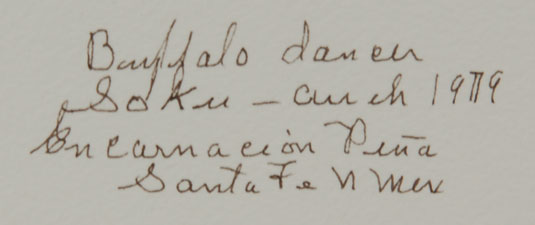 Buffalo dancer
Soku – 1979
Encarnación Peña
Santa Fe N Mex